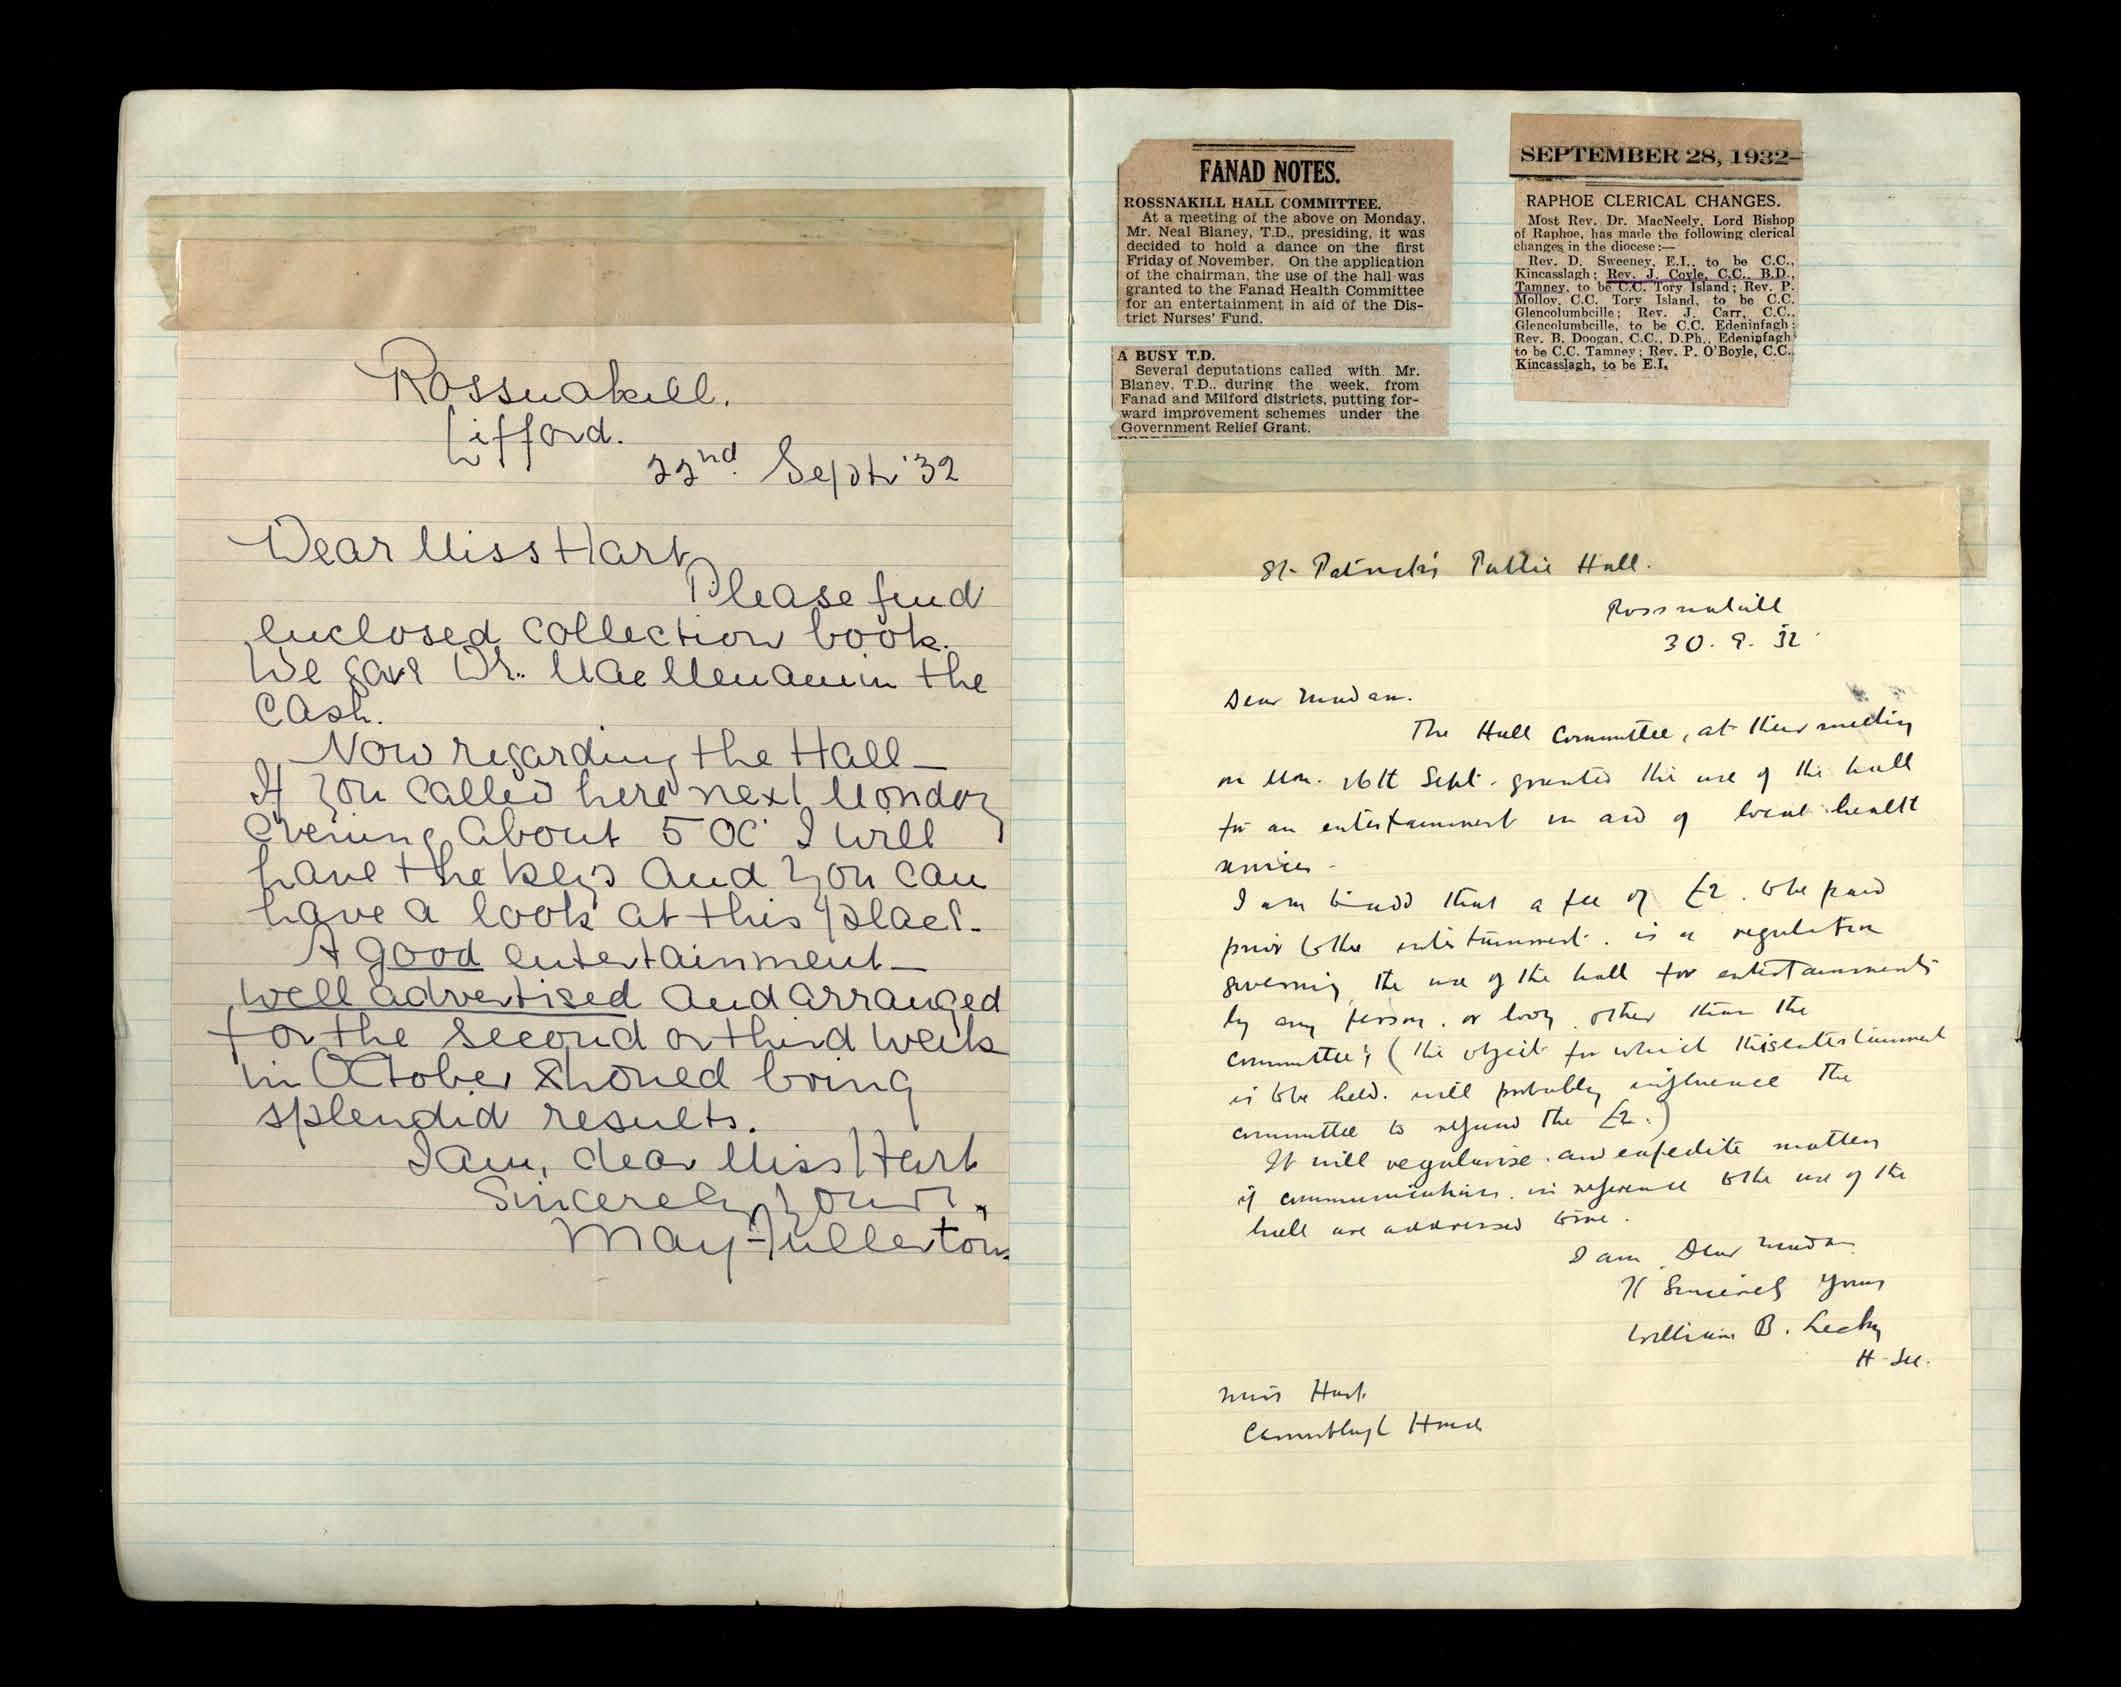 Rossnakill.
Lifford.
22nd. Sept. '32
Dear Miss Hart,
Please find
enclosed collection book.
We gave Dr. MacMenamin the
cash.
Now regarding the Hall —
If you called here next Monday
evening about 5 OC I will
have the keys and you can
have a look at this place.
A good entertainment —
well advertised and arranged
for the second or third week
in October should bring
splendid results.
I am, dear Miss Hart
Sincerely Yours,
May Fullerton
FANAD NOTES.
ROSSNAKILL HALL COMMITTEE.
At a meeting of the above on Monday,
Mr. Neal Blaney, T.D., presiding, it was
decided to hold a dance on the first
Friday of November. On the application
of the chairman, the use of the hall was
granted to the Fanad Health Committee
for an entertainment in aid of the Dis-
trict Nurses' Fund.
A BUSY T.D.
Several deputations called with Mr.
Blaney, T.D., during the week, from
Fanad and Milford districts, putting for-
ward improvement schemes under the
Government Relief Grant.
SEPTEMBER 28, 1932—
RAPHOE CLERICAL CHANGES.
Most Rev. Dr. MacNeely, Lord Bishop
of Raphoe, has made the following clerical
changes in the diocese :—
Rev. D. Sweeney, E.I., to be C.C.,
Kincasslagh; Rev. J. Coyle, C.C., B.D.,
Tamney, to be C.C. Tory Island; Rev. P.
Molloy, C.C. Tory Island, to be C.C.
Glencolumbcille; Rev. J. Carr, C.C.,
Glencolumbcille, to be C.C. Edeninfagh;
Rev. B. Doogan, C.C., D.Ph., Edeninfagh
to be C.C. Tamney; Rev. P. O'Boyle, C.C.,
Kincasslagh, to be E.I.
St. Patrick's Public Hall.
Rossnakill
30. 9. 32
Dear Madam.
The Hall Committee, at their meeting
on Mon. 26th Sept. granted the use of the hall
for an entertainment in aid of local health
services.
I am to add that a fee of £2. to be paid
prior to the entertainment. is a regulation
governing the use of the hall for entertainments
by any person. or body. other than the
committee; (the object for which this entertainment
is to be held. will probably influence the
committee to refund the £2.)
It will regularise. and expedite matters
if communications. in reference to the use of the
hall are addressed to me.
I am Dear Madam
Sincerely Yours
William B. Lecky
H. Sec.
Miss Hart
Carrablagh House